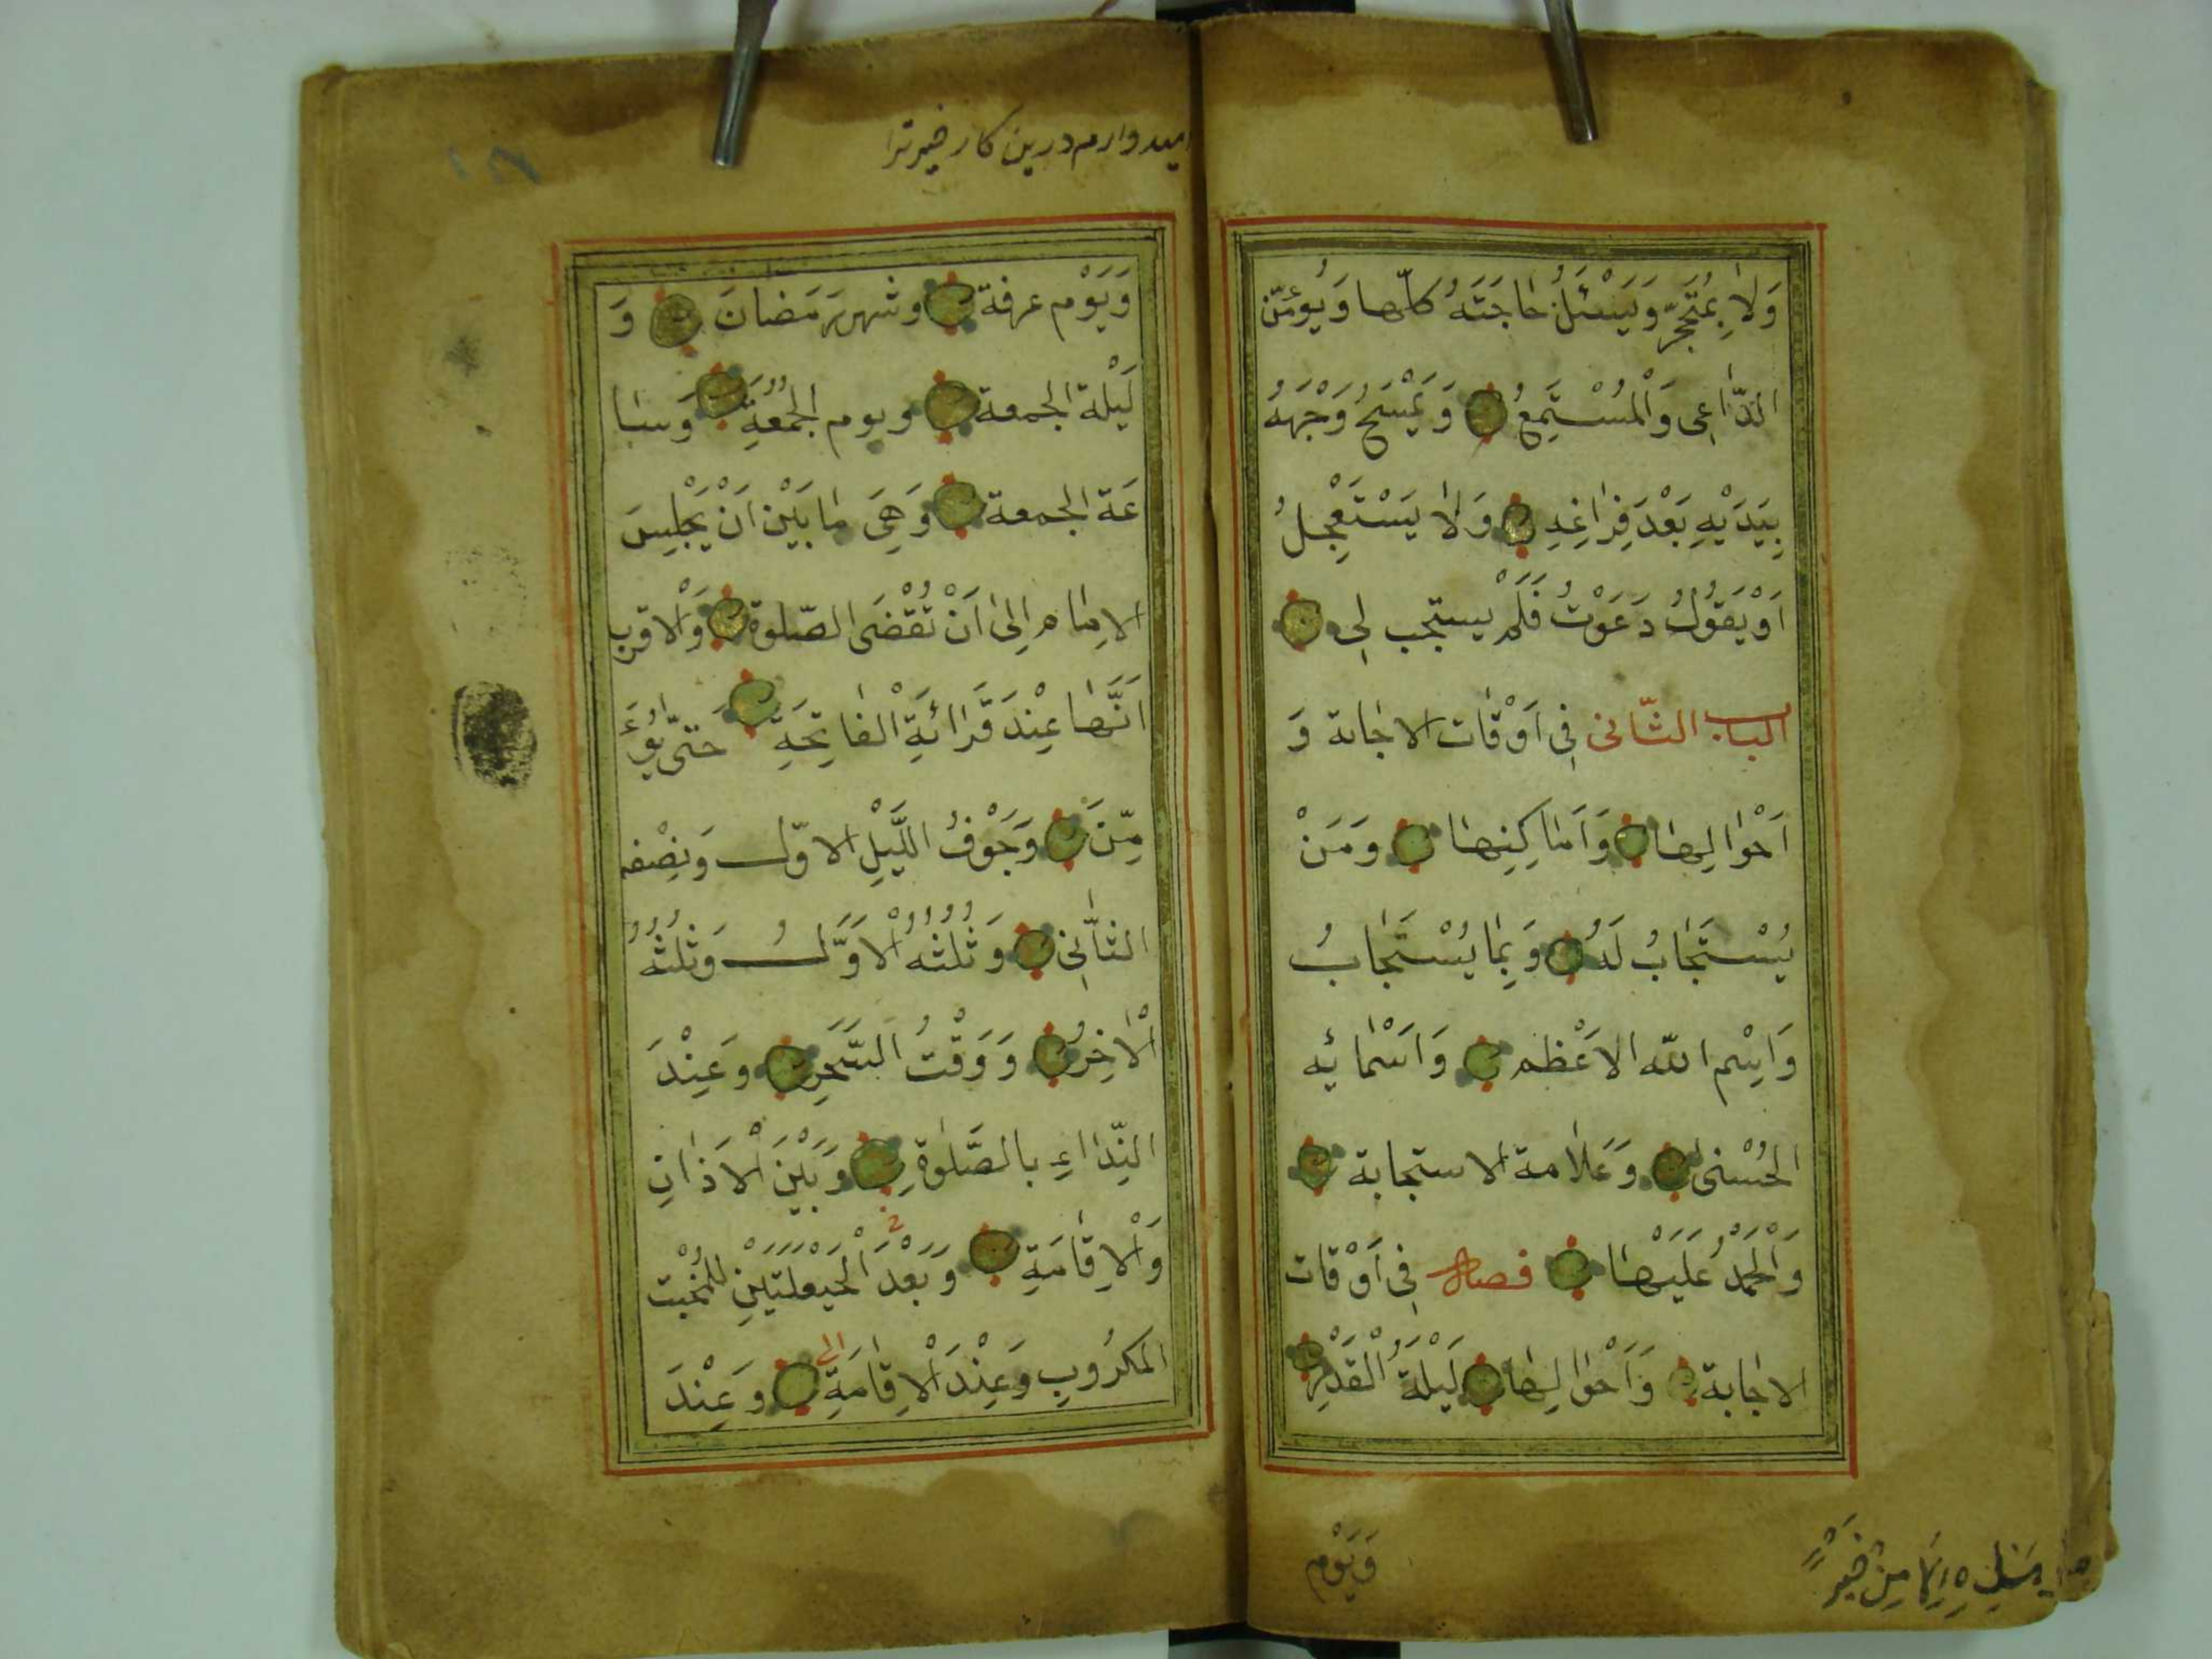 وَلاٰ بِمُتَحَجِّرٍ وَيَسْئَلُ حٰاجَتَهُ كلّها وَيُؤَمِّن
الدّٰاعِى وَالْمُسْتَمِعُ وَيَمْسَحُ وَجْهَهُ
بِيَدَيْهِ بَعْدَ فِرٰاغِهِ وَلاٰ يَسْتَعْجِلُ
اَوْ يَقُولُ دَعَوْتُ فَلَمْ يستجب لِى
الباب الثّانى فِى اَوْقٰات الاجٰابة وَ
اَحْوٰالِهٰا وَاَمٰاكِنِهٰا وَمَنْ
يُسْتَجٰابُ لَهُ وَبِمٰا يُسْتَجٰابُ
وَاِسْم اللّه الاَعْظم وَاَسْمٰائِه
الحُسْنىٰ وَعَلاٰمة الاستجابة
وَالْحَمْدُ عَلَيْهٰا فصل فِى اَوْقات
الاجٰابة وَاَحْوٰالِهٰا لَيْلَةُ الْقَدْرِ
وَيَوْم
مِنْ خَيْرٍ
اميدوارم درين كار خير ترا
وَيَوْم عرفة وشهر رَمَضانَ وَ
لَيْلة الجمعة ويوم الجُمُعَةِ وَسٰا
عَة الجمعة وَهِىَ مٰا بَيْنَ اَنْ يَجْلِسَ
الاِمٰام اِلىٰ اَنْ تُقْضَى الصّلوة وَالْاقرب
اَنَّهٰا عِنْدَ قَرٰائَةِ الْفٰاتِحَةِ حَتّىٰ يُؤَ
مِّنَ وَجَوْفُ اللَّيْلِ الاوّل وَنِصْفه
الثّٰانِى وَثُلُثُهُ الْاَوَّلُ وَثُلُثُهُ
الْاٰخِرُ وَوَقْتُ السَّحَرِ وَعِنْدَ
النِّدٰاءِ بالصَّلوٰةِ وَبَيْنَ الْاَذٰانِ
وَالْاِقٰامَةِ وَبَعْدَ الْحَيْعَلَتَيْنِ للمُخْبت
المَكرُوبِ وَعِنْدَ الْاِقٰامَةِ وَعِنْدَ